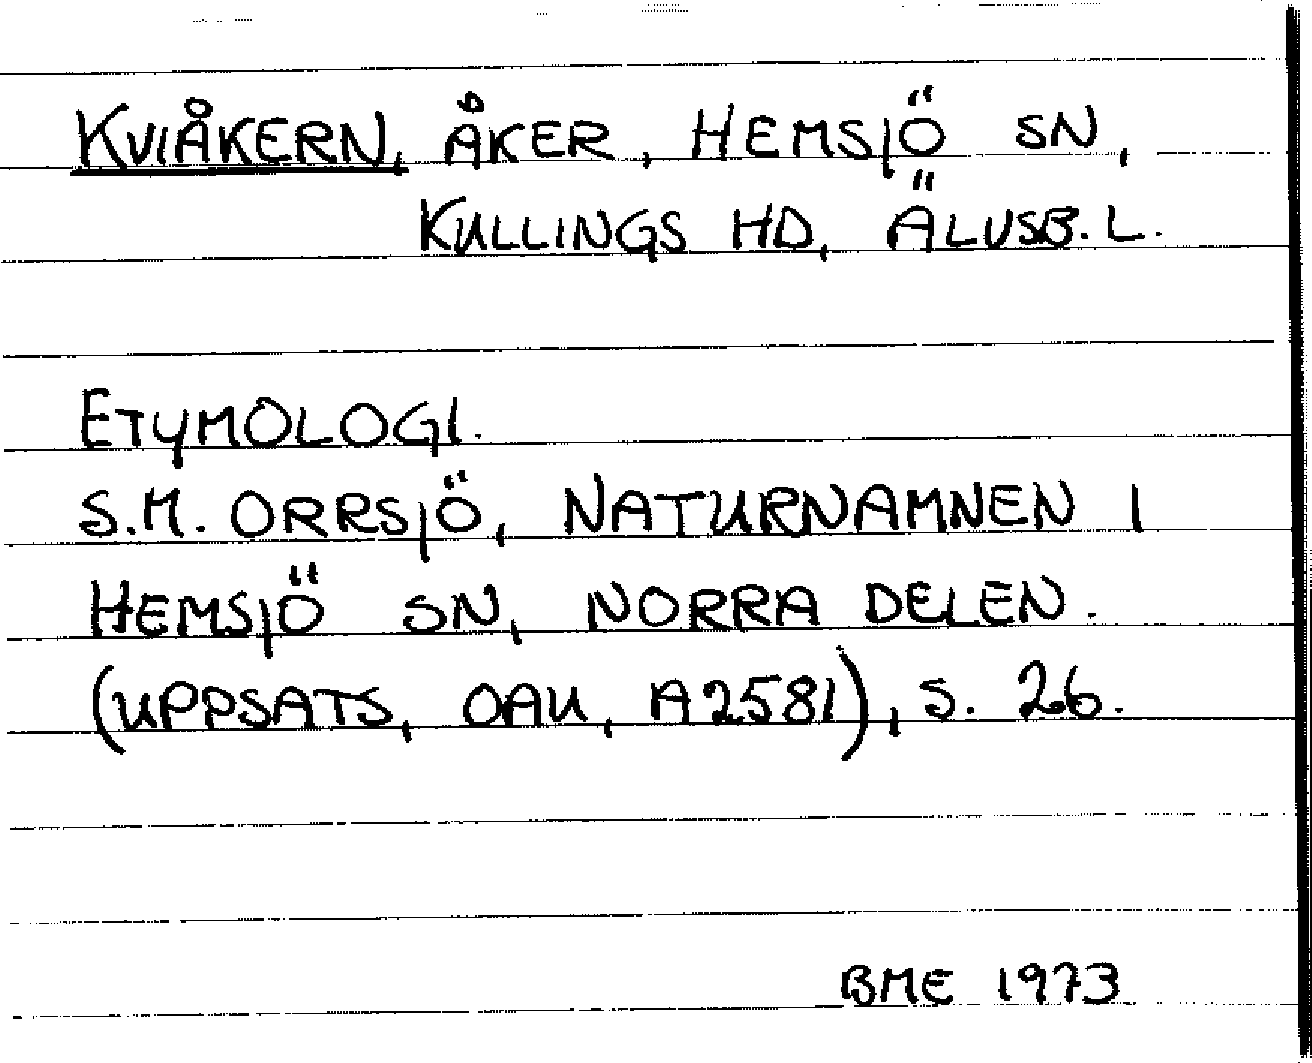 KVIÅKERN, ÅKER, HEMSJÖ SN,
KULLINGS HD, ÄLVSB. L.
ETYMOLOGI.
S.M. ORRSJÖ, NATURNAMNEN I
HEMSJÖ SN, NORRA DELEN.
(UPPSATS, OAU, A2581), S. 26.
BME 1973